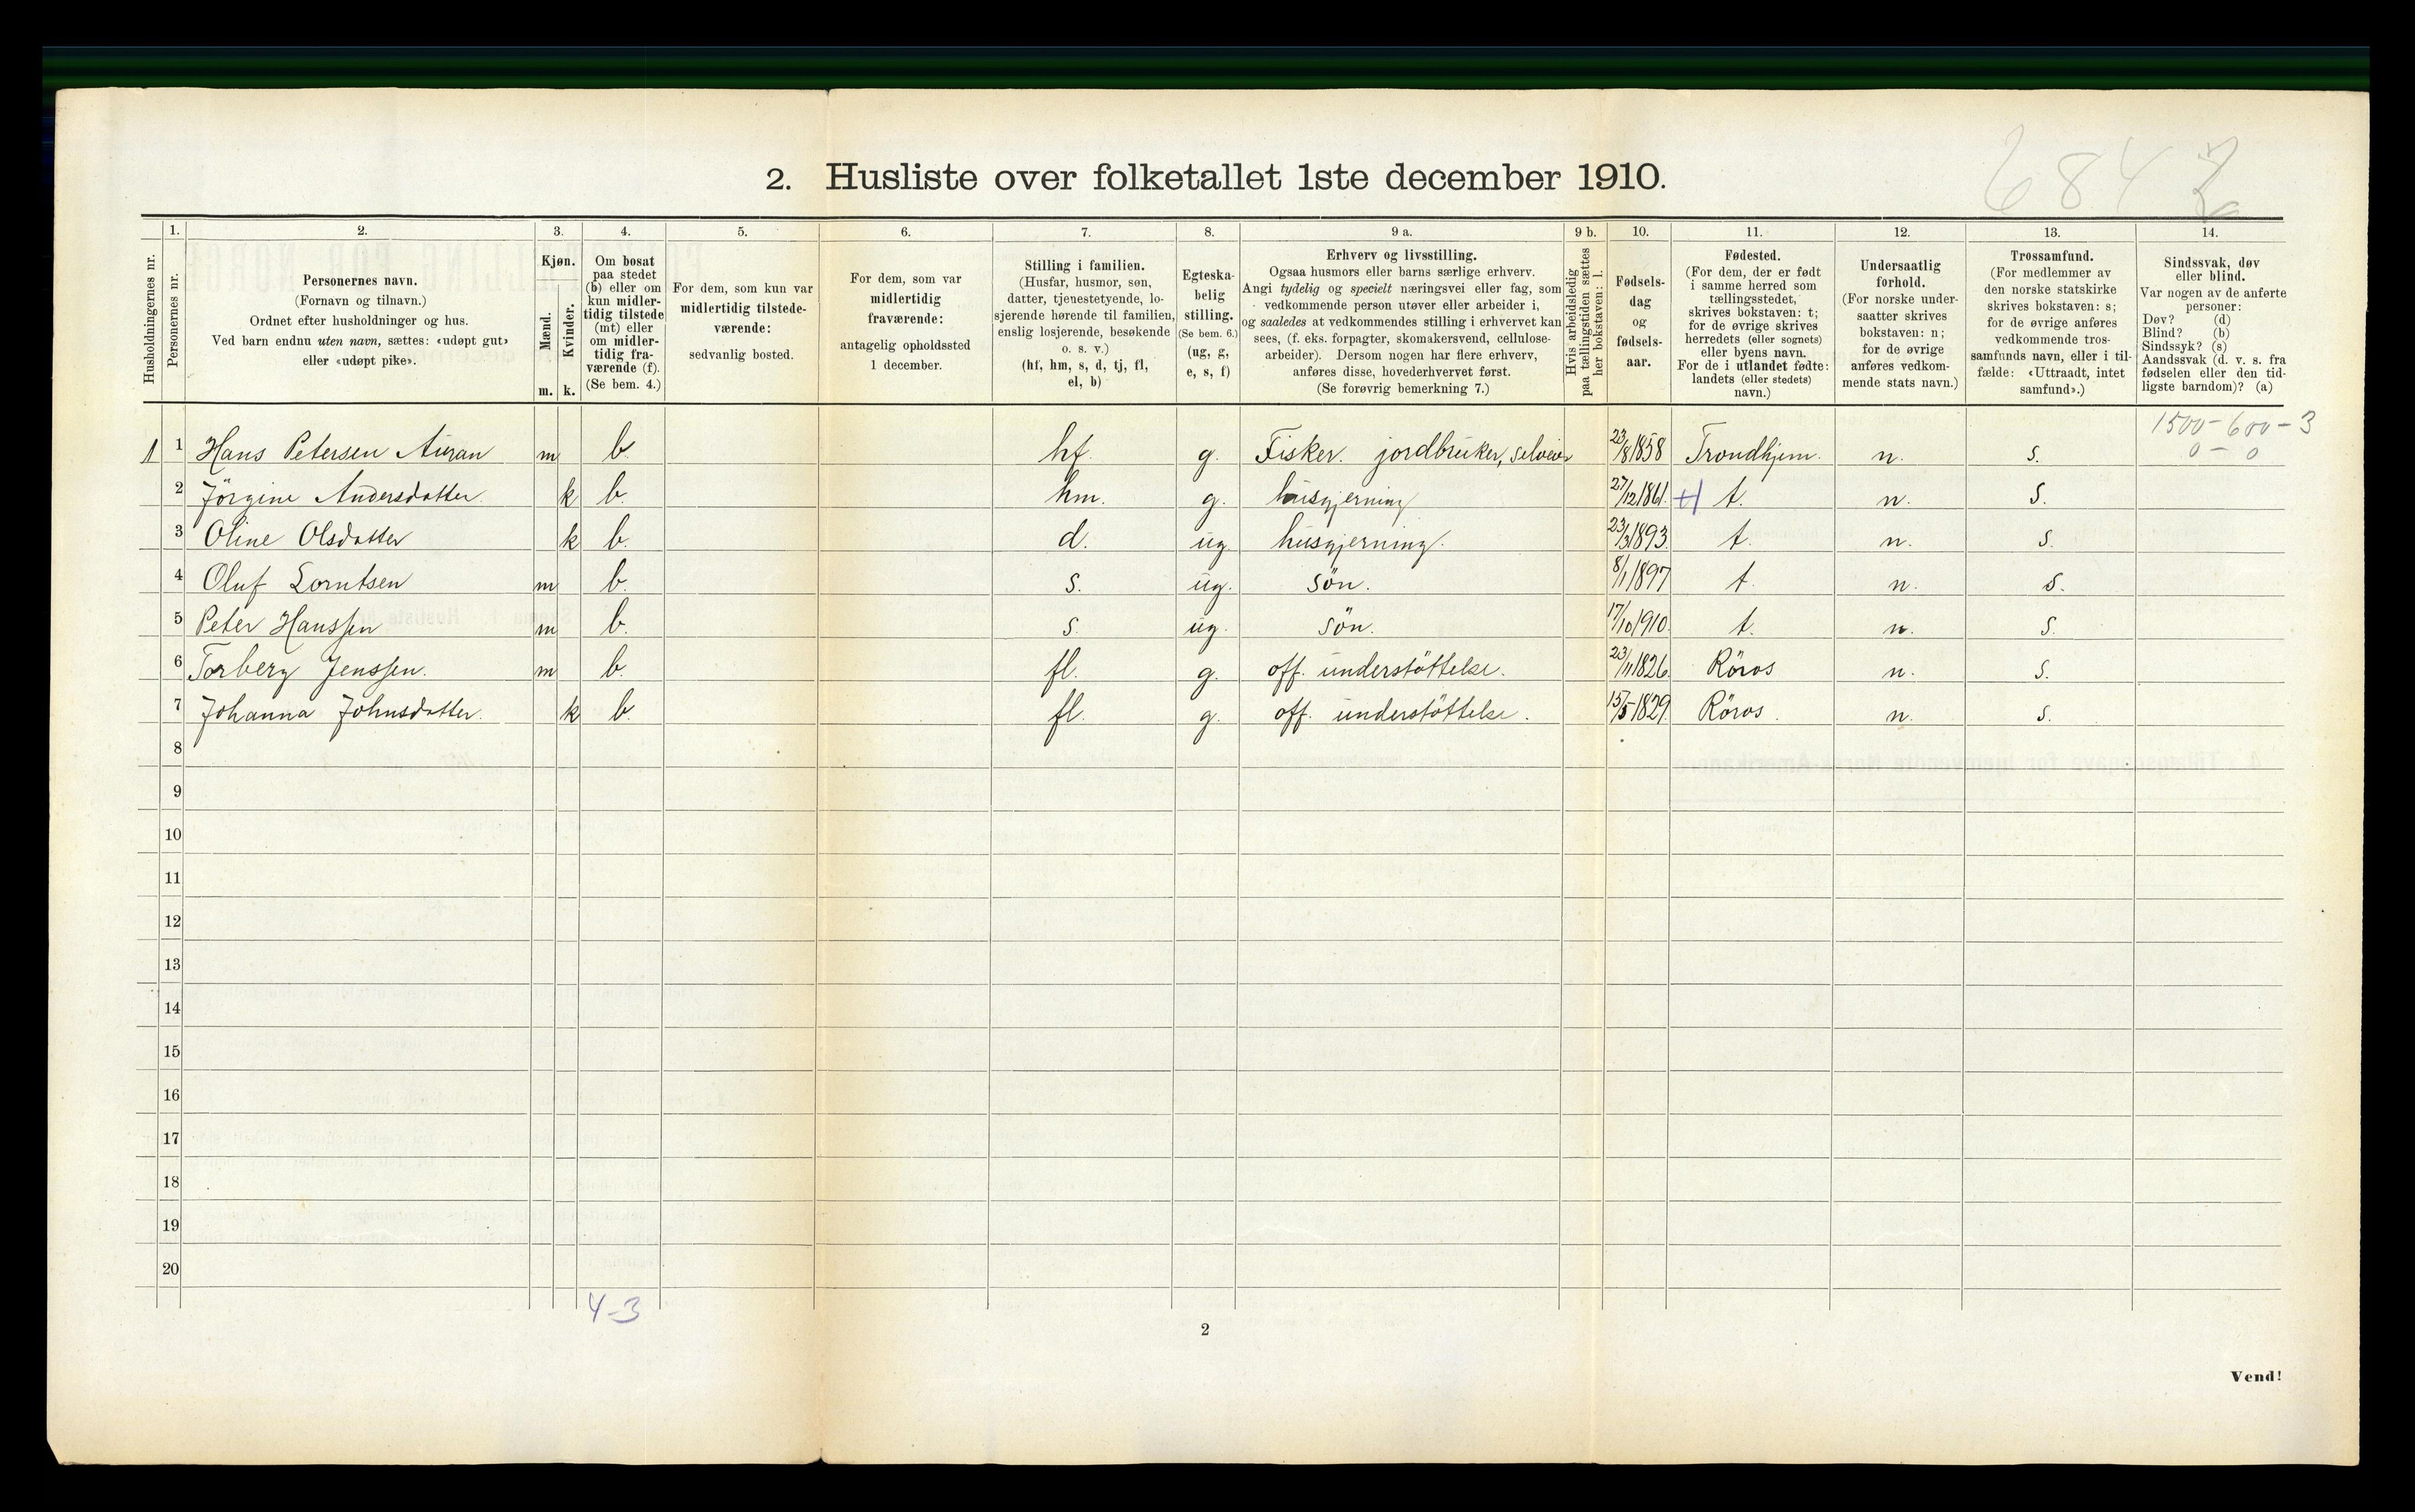 6842
2. Husliste over folketallet 1ste december 1910.
Husholdningernes nr.
1.
Personernes nr.
2.
Personernes navn.
(Fornavn og tilnavn.)
Ordnet efter husholdninger og hus.
Ved barn endnu uten navn, sættes: «udøpt gut»
eller «udøpt pike».
3.
Kjøn.
Mænd.
Kvinder.
m. k.
4.
Om bosat
paa stedet
(b) eller om
kun midler-
tidig tilstede
(mt) eller
om midler-
tidig fra-
værende (f).
(Se bem. 4.)
5.
For dem, som kun var
midlertidig tilstede-
værende:
sedvanlig bosted.
6.
For dem, som var
midlertidig
fraværende:
antagelig opholdssted
1 december.
7.
Stilling i familien.
(Husfar, husmor, søn,
datter, tjenestetyende, lo-
sjerende hørende til familien,
enslig losjerende, besøkende
o. s. v.)
(hf, hm, s, d, tj, fl,
el, b)
8.
Egteska-
belig
stilling.
(Se bem. 6.)
(ug, g,
e, s, f)
9 a.
Erhverv og livsstilling.
Ogsaa husmors eller barns særlige erhverv.
Angi tydelig og specielt næringsvei eller fag, som
vedkommende person utøver eller arbeider i,
og saaledes at vedkommendes stilling i erhvervet kan
sees, (f. eks. forpagter, skomakersvend, cellulose-
arbeider). Dersom nogen har flere erhverv,
anføres disse, hovederhvervet først.
(Se forøvrig bemerkning 7.)
9 b.
Hvis arbeidsledig
paa tællingstiden sættes
her bokstaven: l.
10.
Fødsels-
dag
og
fødsels-
aar.
11.
Fødested.
(For dem, der er født
i samme herred som
tællingsstedet,
skrives bokstaven: t;
for de øvrige skrives
herredets (eller sognets)
eller byens navn.
For de i utlandet fødte:
landets (eller stedets)
navn.)
12.
Undersaatlig
forhold.
(For norske under-
saatter skrives
bokstaven: n;
for de øvrige
anføres vedkom-
mende stats navn.)
13.
Trossamfund.
(For medlemmer av
den norske statskirke
skrives bokstaven: s;
for de øvrige anføres
vedkommende tros-
samfunds navn, eller i til-
fælde: «Uttraadt, intet
samfund».)
14.
Sindssvak, døv
eller blind.
Var nogen av de anførte
personer:
Døv? (d)
Blind? (b)
Sindssyk? (s)
Aandssvak (d. v. s. fra
fødselen eller den tid-
ligste barndom)? (a)
1500 - 600 - 3
0 - 0
1 1 Hans Petersen Auran m b. hf. g. Fisker. jordbruker, selveier 23/8 1858 Trondhjem. n. s.
2 Jörgine Andersdatter. k b. hm. g. husgjerning 27/12 1861. t. n. s.
3 Oline Olsdatter k b. d. ug. husgjerning. 23/3 1893. t. n. s.
4 Oluf Lorntsen m b. s. ug. sön. 8/1 1897 t. n. s.
5 Peter Hanssen m b. s. ug. sön. 17/10 1910. t. n. s.
6 Torberg Jenssen. m b. fl. g. off. understöttelse. 23/11 1826. Röros n. s.
7 Johanna Johnsdatter. k b. fl. g. off. understöttelse. 15/5 1829. Röros. n. s.
8
9
10
11
12
13
14
15
16
17
18
19
20
4-3
2
Vend!